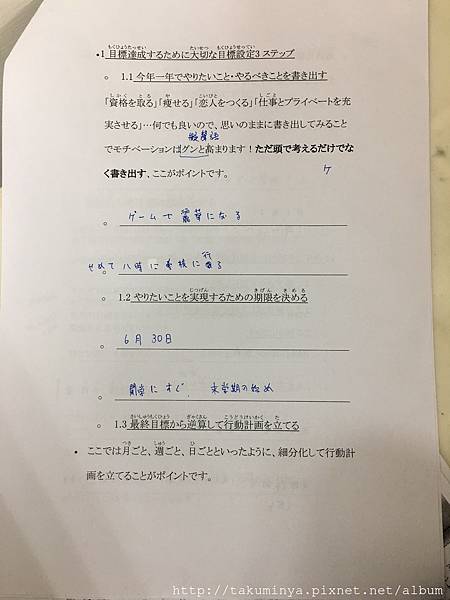 •1 目標達成するために大切な目標設定3 ステップ
1.1 今年一年でやりたいこと・やるべきことを書き出す
「資格を取る」「痩せる」「恋人をつくる」「仕事とプライベートを充
実させる」…何でも良いので、思いのままに書き出してみること
でモチベーションはグンと高まります！ただ頭で考えるだけでな
く書き出す、ここがポイントです。
ケ
ゲームで
になる
せめて 八時に
に行
る
1.2 やりたいことを実現するための期限を決める
6月 30日
にすぐ、来学期の始め
1.3 最終目標から逆算して行動計画を立てる
• ここでは月ごと、週ごと、日ごとといったように、細分化して行動計
画を立てることがポイントです。
http://takuminya.pixnet.net/album